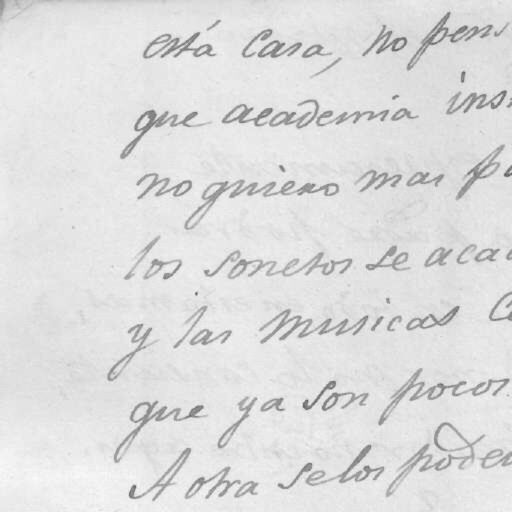 está Casa, no pens
que academia ins
no quiero mas pa
los sonetos se aca
y las musicas Ca
que ya son pocos
A otra se los poder